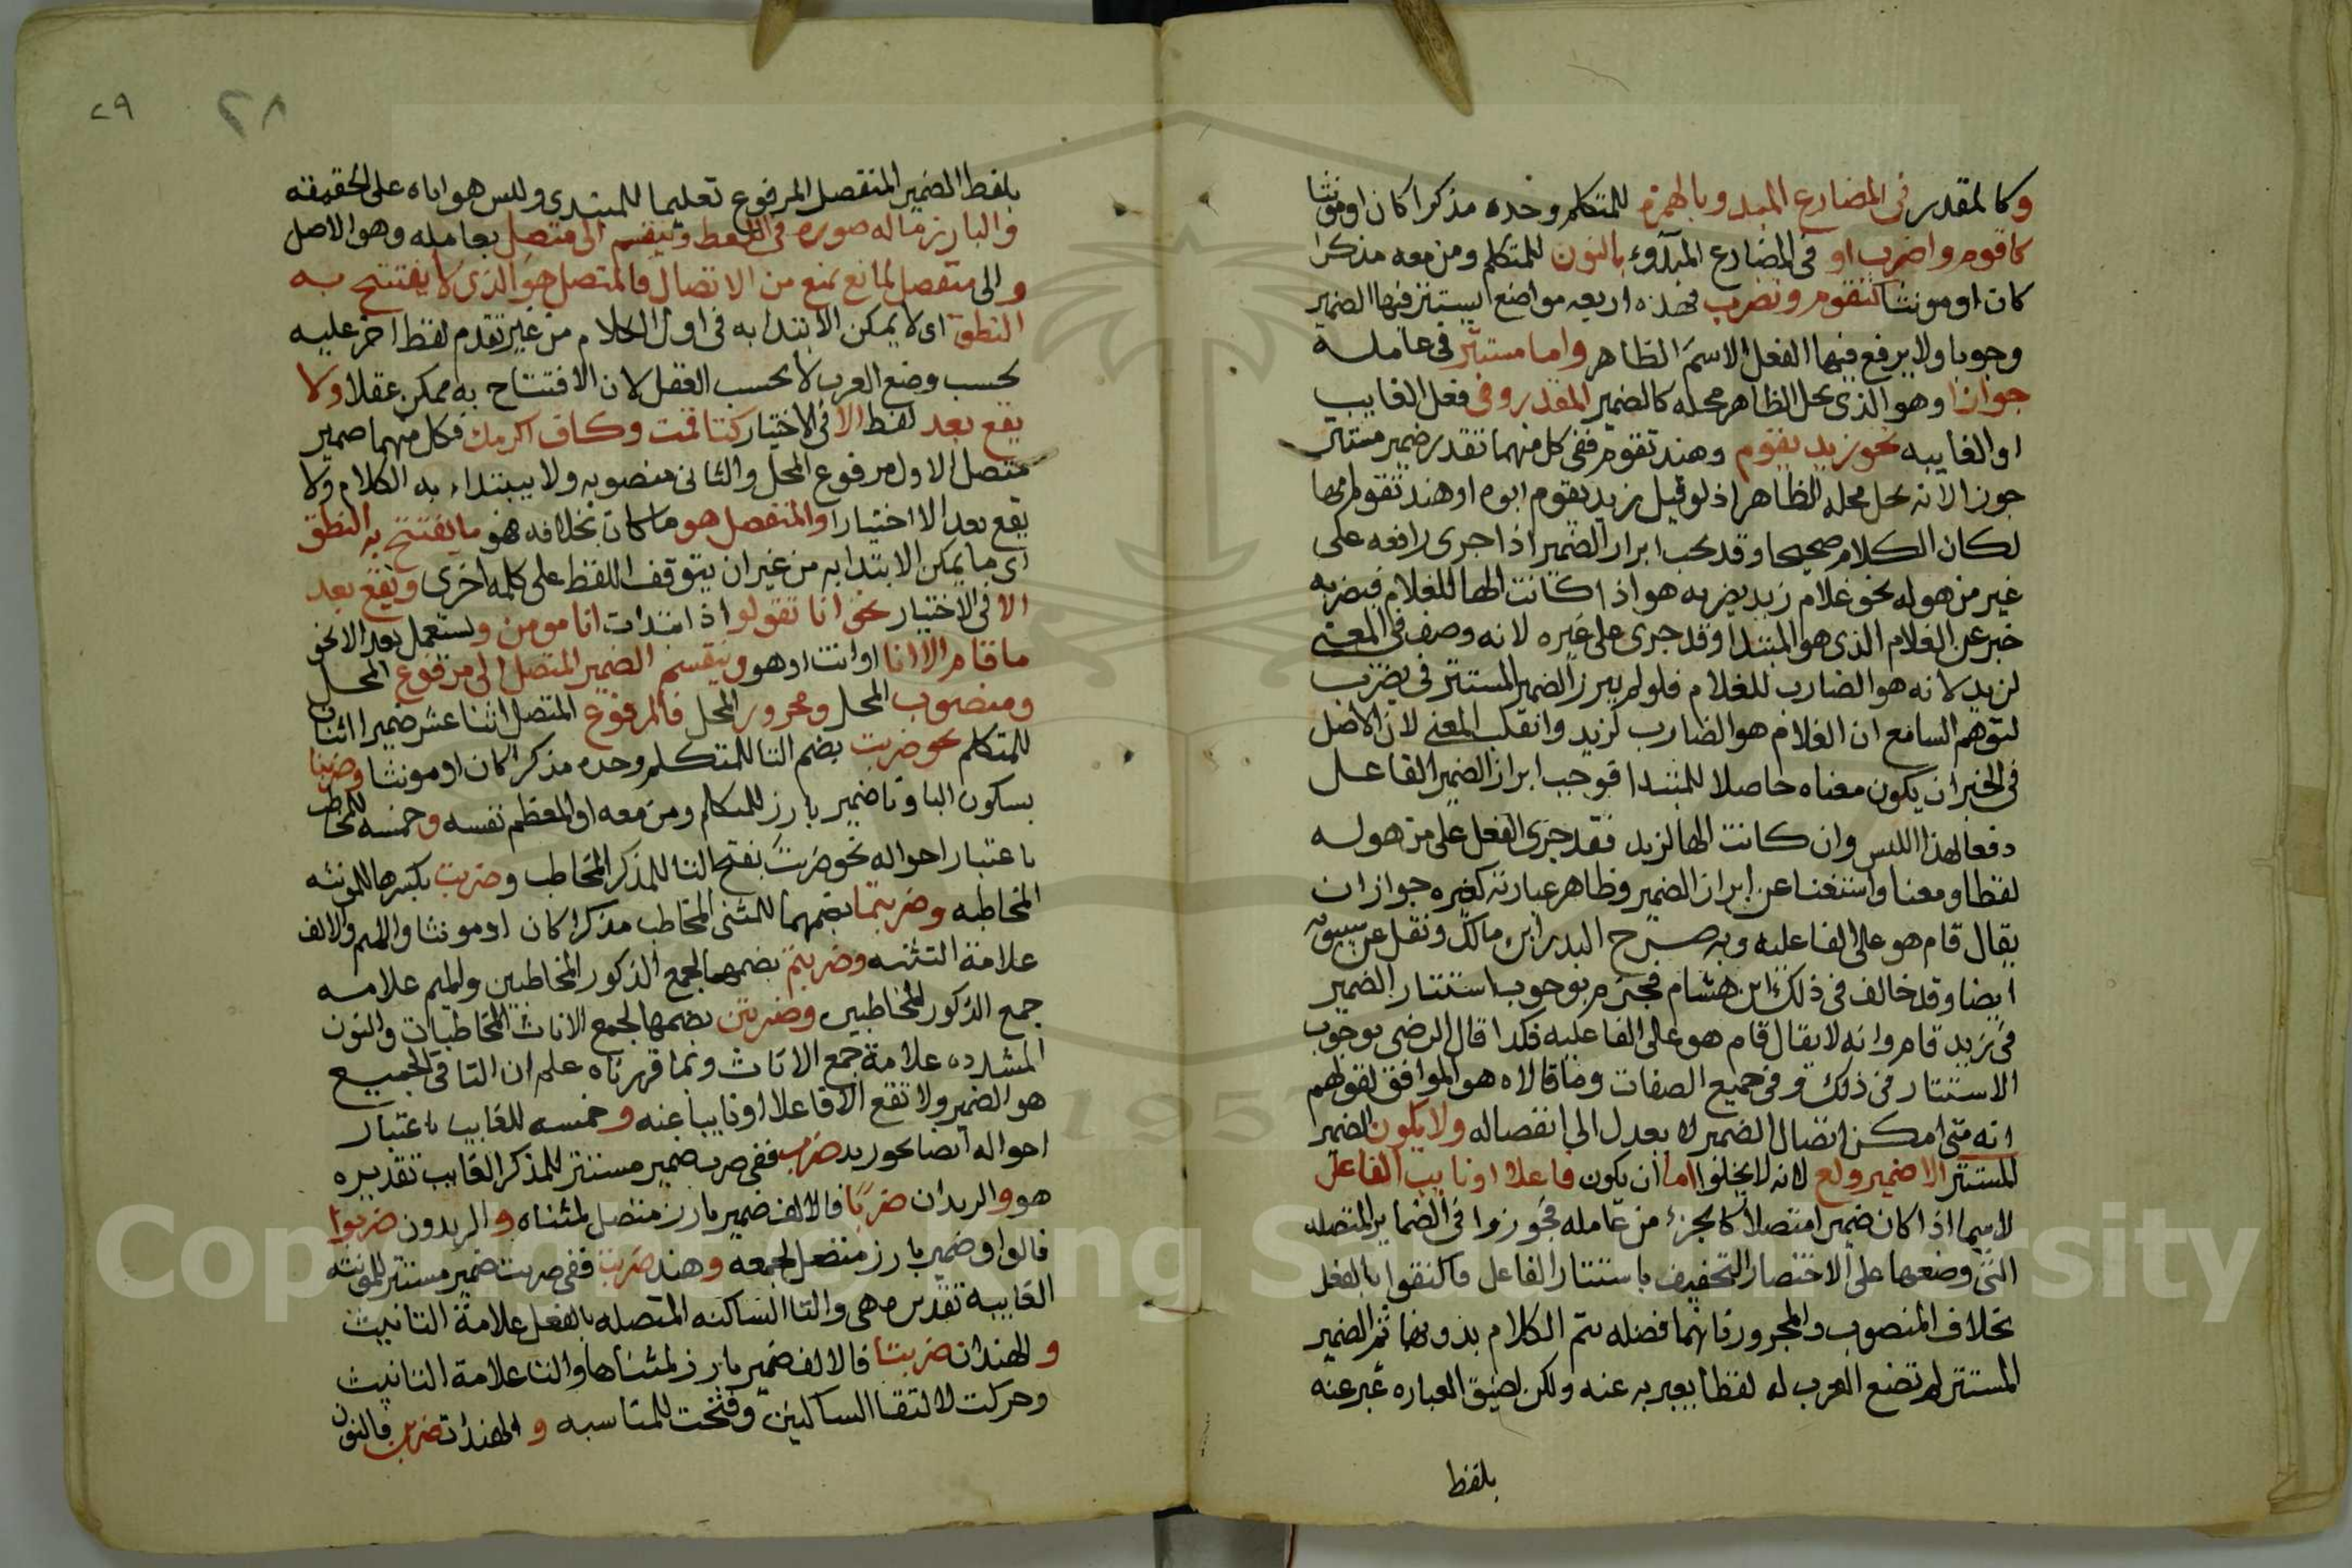 وكالمقدر في المضارع المبدو بالهمزة للمتكلم وحده مذكرا كان او مونثا
كاقوم واضرب او في المضارع المبدوء بالنون للمتكلم ومن معه مذكرا
كان او مونثا كنقوم ونضرب فهذه اربعه مواضع يستتر فيها الضمير
وجوبا ولا يرفع فيها الفعل الاسم الظاهر واما مستتر في عامله
جوازا وهو الذي يحل الظاهر محله كالضمير المقدر في فعل الغايب
او الغايبه نحو زيد يقوم وهند تقوم ففي كل منهما تقدير ضمير مستتر
جوازا لانه يحل محله الظاهر اذ لو قيل زيد يقوم ابوه او هند تقوم امها
لكان الكلام صحيحا وقد يجب ابراز الضمير اذا جرى رافعه على
غير من هو له نحو غلام زيد يضربه هو اذا كانت الها للغلام فيضربه
خبر عن الغلام الذي هو المبتدا وقد جرى على غيره لانه وصف في المعنى
لزيد لانه هو الضارب للغلام فلو لم يبرز الضمير المستتر في يضرب
لتوهم السامع ان الغلام هو الضارب لزيد وانقلب المعنى لان الاصل
في الخبر ان يكون معناه حاصلا للمبتدا فوجب ابراز الضمير الفاعل
دفعا لهذا اللبس وان كانت الها لزيد فقد جرى الفعل على من هو له
لفظا ومعنا واستغنا عن ابراز الضمير وظاهر عبارته كغيره جواز ان
يقال قام هو على الفاعليه وبه صرح البدر ابن مالك ونقل عن سيبويه
ايضا وقد خالف في ذلك ابن هشام فجزم بوجوب استتار الضمير
في زيد قام وانه لا يقال قام هو على الفاعليه فكدا قال الرضي بوجوب
الاستتار في ذلك وفي جميع الصفات وما قالاه هو الموافق لقولهم
انه متى امكن اتصال الضمير لا يعدل الى انفصاله ولا يكون الضمير
المستتر الا ضمير رفع لانه لا يخلوا اما ان يكون فاعلا او نايب الفاعل
لاسيما اذا كان ضميرا متصلا كالجزء من عامله فجوزوا في الضماير المتصله
التي وضعها على الاختصار التخفيف باستتار الفاعل فاكتفوا بالفعل
بخلاف المنصوب والمجرور فانهما فضله يتم الكلام بدونها ثم الضمير
المستتر لم تضع العرب له لفظا يعبر به عنه ولكن لضيق العباره عبر عنه
بلفظ
٢٨
٢٩
بلفظ الضمير المنفصل المرفوع تعليما للمبتدي وليس هو اياه على الحقيقه
والبارز ماله صوره في اللفظ وينقسم الى متصل بعامله وهو الاصل
والى منفصل لمانع يمنع من الاتصال فالمتصل هو الذي لا يفتتح به
النطق اي لا يمكن الابتدا به في اول الكلام من غير تقدم لفظ اخر عليه
بحسب وضع العرب لا بحسب العقل لان الافتتاح به ممكن عقلا ولا
يقع بعد لفظ الا في الاختيار كتا قمت وكاف اكرمك فكل منهما ضمير
متصل الاول مرفوع المحل والثاني منصوبه ولا يبتداء به الكلام ولا
يقع بعد الا اختيارا والمنفصل هو ما كان بخلافه فهو ما يفتتح به النطق
اي ما يمكن الابتدا به من غير ان يتوقف اللفظ على كلمه اخرى ويقع بعد
الا في الاختيار نحو انا تقول اذا ابتدات انا مومن ويستعمل بعد الا نحو
ما قام الا انا او انت او هو وينقسم الضمير المتصل الى مرفوع المحل
ومنصوب المحل ومجرور المحل فالمرفوع المتصل اثنا عشر ضميرا اثنان
للمتكلم نحو ضربت بضم التا للمتكلم وحده مذكرا كان او مونثا وضربنا
بسكون البا ونا ضمير بارز للمتكلم ومن معه او المعظم نفسه وخمسه للمخاطب
باعتبار احواله نحو ضربت بفتح التا للمذكر المخاطب وضربت بكسرها للمونثه
المخاطبه وضربتما بضمهما للمثنى المخاطب مذكرا كان او مونثا والميم والالف
علامة التثنيه وضربتم بضمها لجمع الذكور المخاطبين والميم علامه
جمع الذكور المخاطبين وضربتن بضمها لجمع الاناث المخاطبات والنون
المشدده علامة جمع الاناث وبما قررناه علم ان التا في الجميع
هو الضمير ولا تقع الا فاعلا او نايبا عنه وخمسه للغايب باعتبار
احواله ايضا نحو زيد ضرب ففي ضرب ضمير مستتر للمذكر الغايب تقديره
هو والزيدان ضربا فالالف ضمير بارز متصل لمثناه والزيدون ضربوا
فالواو ضمير بارز متصل لجمعه وهند ضربت ففي ضربت ضمير مستتر للمونثه
الغايبه تقديره هي والتا الساكنه المتصله بالفعل علامة التانيث
والهندان ضربتا فالالف ضمير بارز لمثناها والتا علامة التانيث
وحركت لالتقا الساكنين وفتحت للمناسبه والهندات ضربن فالنون
Copyright © King Saud University
1957